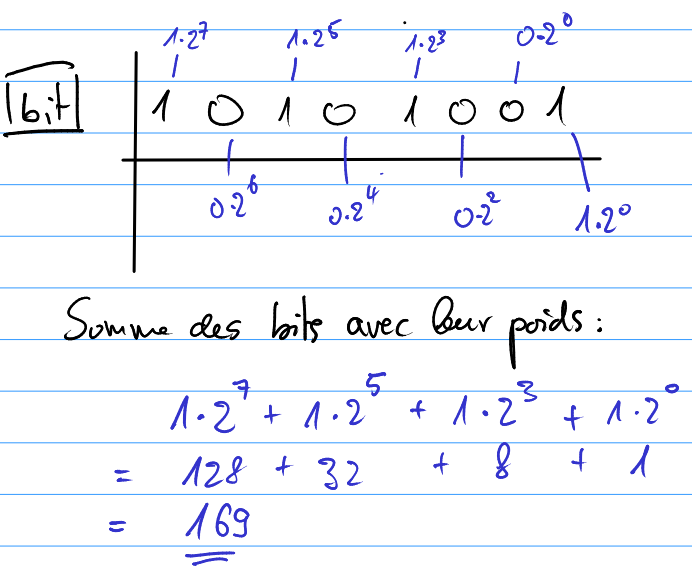 1·2⁷ 1·2⁵ 1·2³ 0·2⁰
bit 1 0 1 0 1 0 0 1
0·2⁶ 0·2⁴ 0·2² 1·2⁰
Somme des bits avec leur poids :
1·2⁷ + 1·2⁵ + 1·2³ + 1·2⁰
= 128 + 32 + 8 + 1
= 169